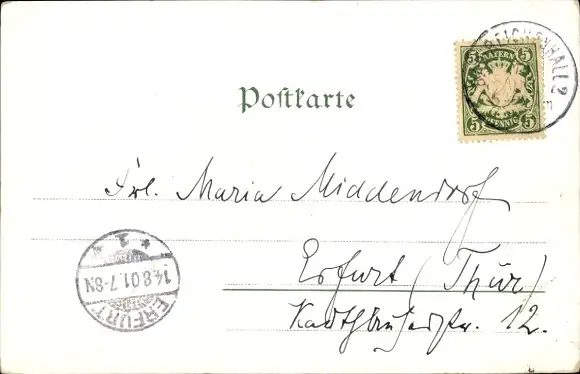 REICHENHALL 2
5 BAYERN 5
5 PFENNIG 5
Postkarte
Frl. Maria Middendorf
Erfurt (Thür.)
Karthäuserstr. 12.
* 1 *
14.8.01.7-8N
ERFURT